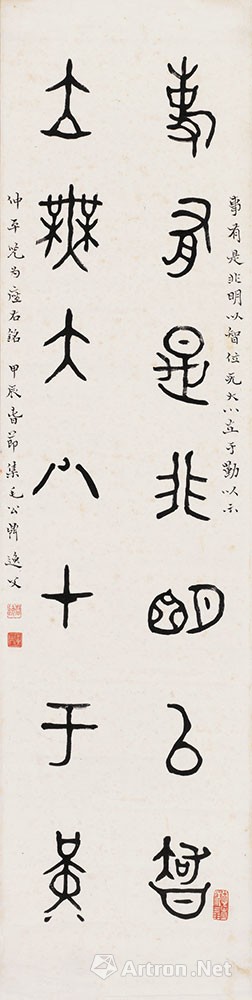 事有是非明以智位无大小在于勤以示
事有是非明以智
立無大小才于堇
仲平兄为座右铭 甲辰春节集毛公鼎 逸叟
Artron.Net